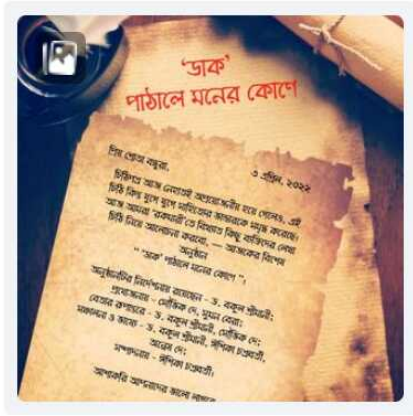 ‘ডাক’
পাঠালে মনের কোণে
প্রিয় শ্রোতা বন্ধুরা,
৩ এপ্রিল, ২০২২
চিঠিপত্র আজ নেহাতই অপ্রয়োজনীয় হয়ে গেলেও, এই
চিঠি কিন্তু যুগে যুগে সাহিত্যের ভান্ডারকে সমৃদ্ধ করেছে।
আজ আমরা 'রকমারী'তে বিখ্যাত কিছু ব্যক্তিদের লেখা
চিঠি নিয়ে আলোচনা করবো, — আজকের বিশেষ
অনুষ্ঠান
“ 'ডাক' পাঠালে মনের কোণে ”।
অনুষ্ঠানটির নির্দেশনায় রয়েছেন - ড. বকুল শ্রীমানী,
প্রযোজনায় - মৌক্তিক দে, সুমন বেরা;
বেতার রূপান্তরে - ড. বকুল শ্রীমানী;
সঞ্চালনা ও ভাষ্যে - ড. বকুল শ্রীমানী, মৌক্তিক দে,
দে;
সম্পাদনায় - ঈপ্সিকা চক্রবর্তী;
আশাকরি আপনাদের ভালো লাগবে